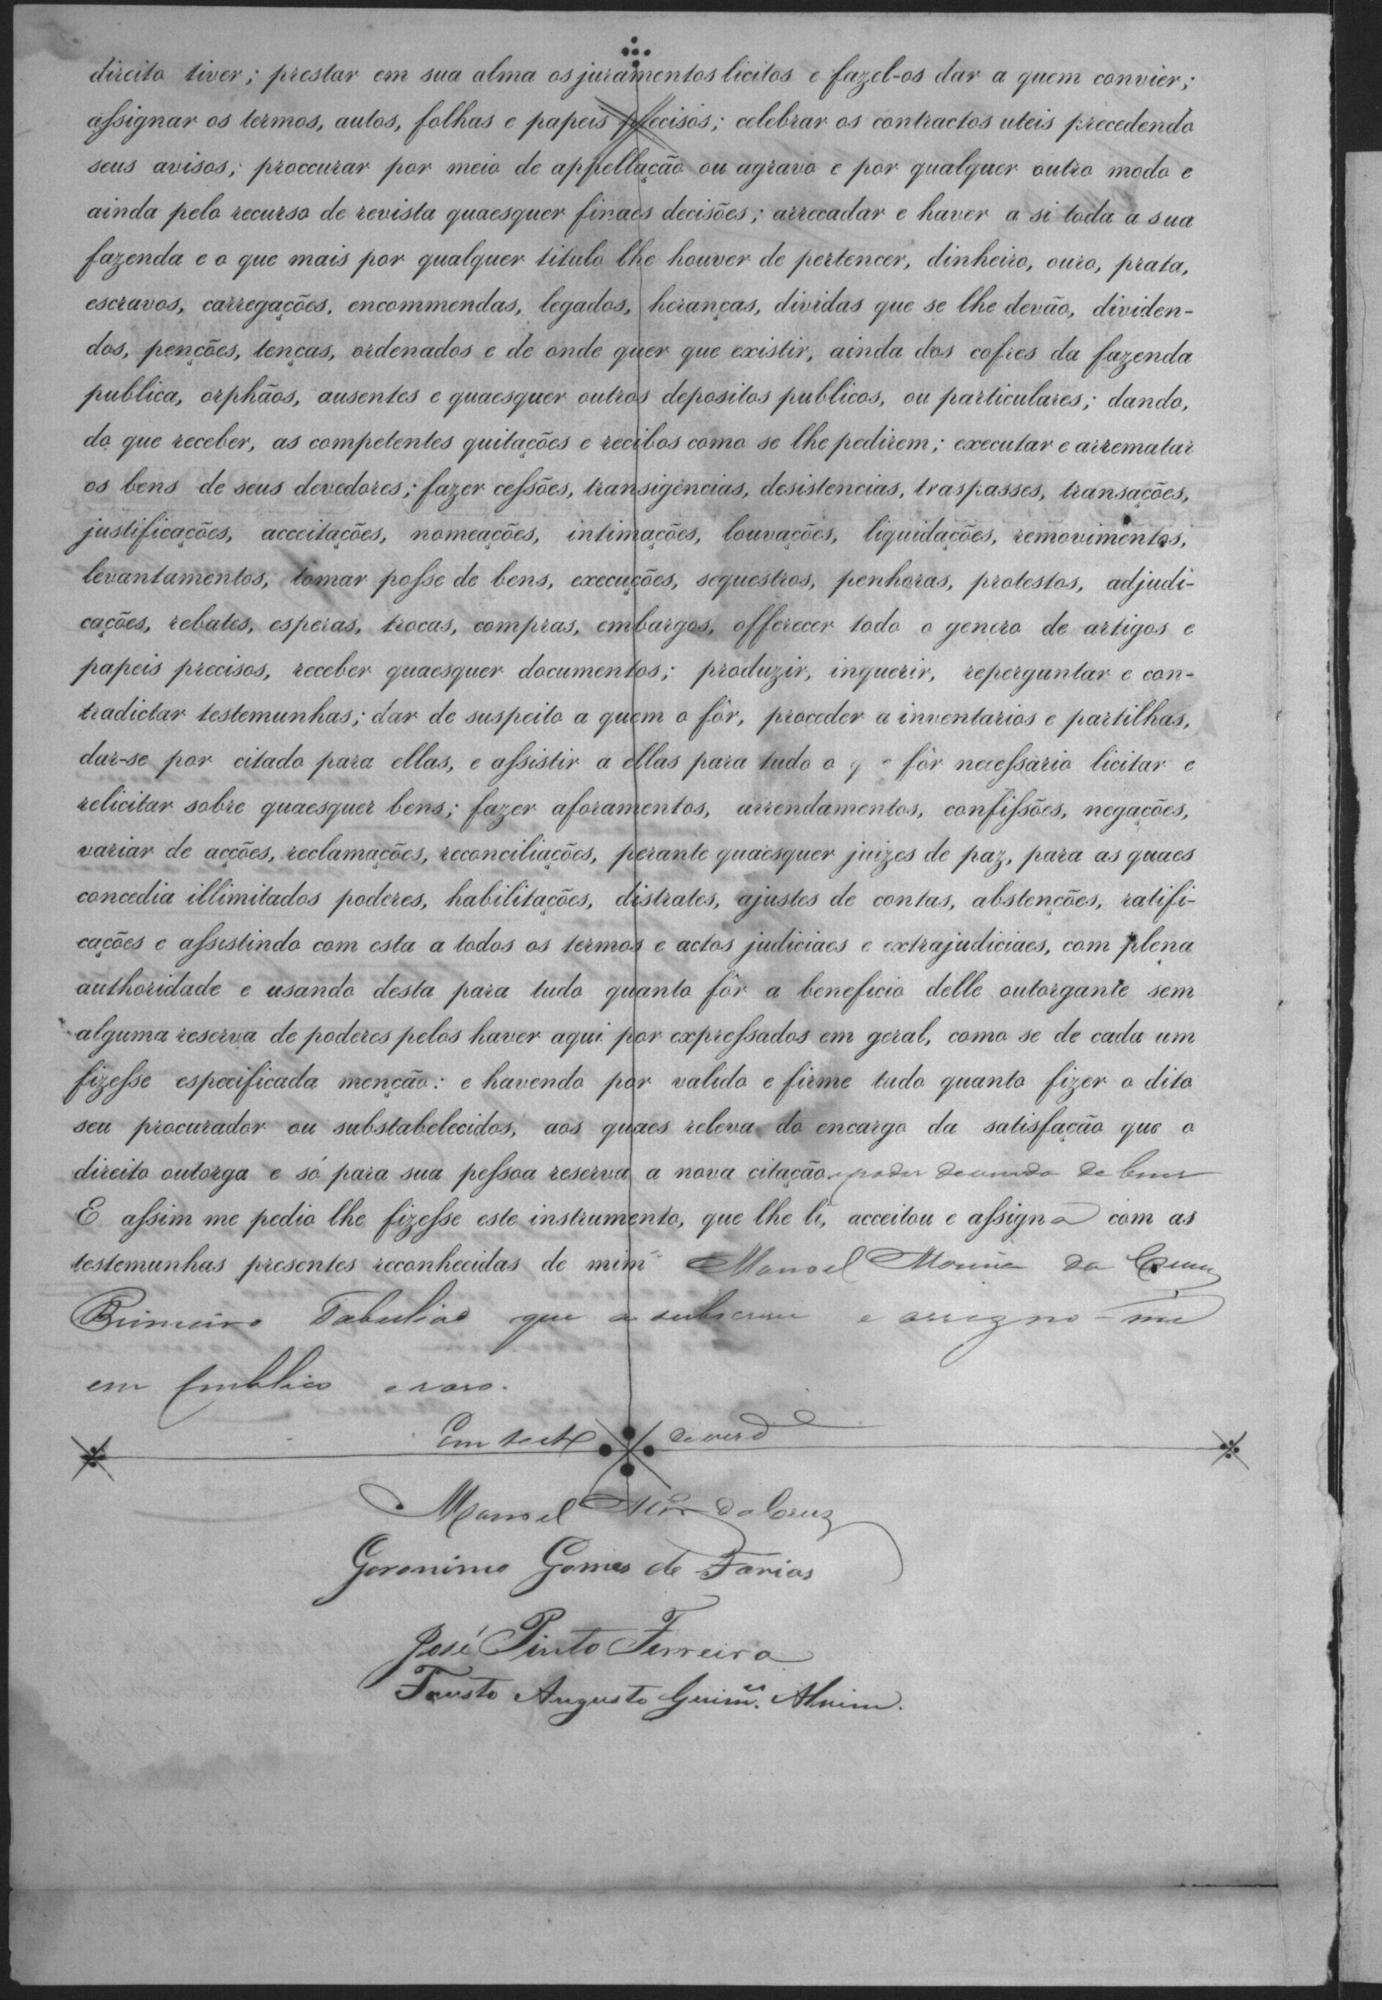 direito tiver; prestar em sua alma os juramentos licitos e fazel-os dar a quem convier;
assignar os termos, autos, folhas e papeis precisos; celebrar os contractos uteis precedendo
seus avisos; proccurar por meio de appellação ou agravo e por qualquer outro modo e
ainda pelo recurso de revista quaesquer finaes decisões; arrecadar e haver a si toda a sua
fazenda e o que mais por qualquer titulo lhe houver de pertencer, dinheiro, ouro, prata,
escravos, carregações, encommendas, legados, heranças, dividas que se lhe devão, dividen-
dos, penções, tenças, ordenados e de onde quer que existir, ainda dos cofres da fazenda
publica, orphãos, ausentes e quaesquer outros depositos publicos, ou particulares; dando,
do que receber, as competentes quitações e recibos como se lhe pedirem; executar e arrematar
os bens de seus devedores; fazer cessões, transigencias, desistencias, traspasses, transações,
justificações, acceitações, nomeações, intimações, louvações, liquidações, removimentos,
levantamentos, tomar posse de bens, execuções, sequestros, penhoras, protestos, adjudi-
cações, rebates, esperas, trocas, compras, embargos, offerecer todo o genero de artigos e
papeis precisos, receber quaesquer documentos; produzir, inquerir, reperguntar e con-
tradictar testemunhas; dar de suspeito a quem o fôr, proceder a inventarios e partilhas,
dar-se por citado para ellas, e assistir a ellas para tudo o q e fôr necessario licitar e
relicitar sobre quaesquer bens; fazer aforamentos, arrendamentos, confissões, negações,
variar de acções, reclamações, reconciliações, perante quaesquer juizes de paz, para as quaes
concedia illimitados poderes, habilitações, distrates, ajustes de contas, abstenções, ratifi-
cações e assistindo com esta a todos os termos e actos judiciaes e extrajudiciaes, com plena
authoridade e usando desta para tudo quanto fôr a beneficio delle outorgante sem
alguma reserva de poderes pelos haver aqui por expressados em geral, como se de cada um
fizesse especificada menção: e havendo por valido e firme tudo quanto fizer o dito
seu procurador ou substabelecidos, aos quaes releva do encargo da satisfação que o
direito outorga e só para sua pessoa reserva a nova citação e poder de venda de bens
E assim me pedio lhe fizesse este instrumento, que lhe li, acceitou e assigna com as
testemunhas presentes reconhecidas de mim Manoel da Cruz
Primeiro Tabelião que a subscrevi e assigno-me
em publico e raso.
Em test de verd
Manoel da Cruz
Geronimo Gomes de Farias
José Pinto Ferreira
Fausto Augusto Guimes. Alvim.